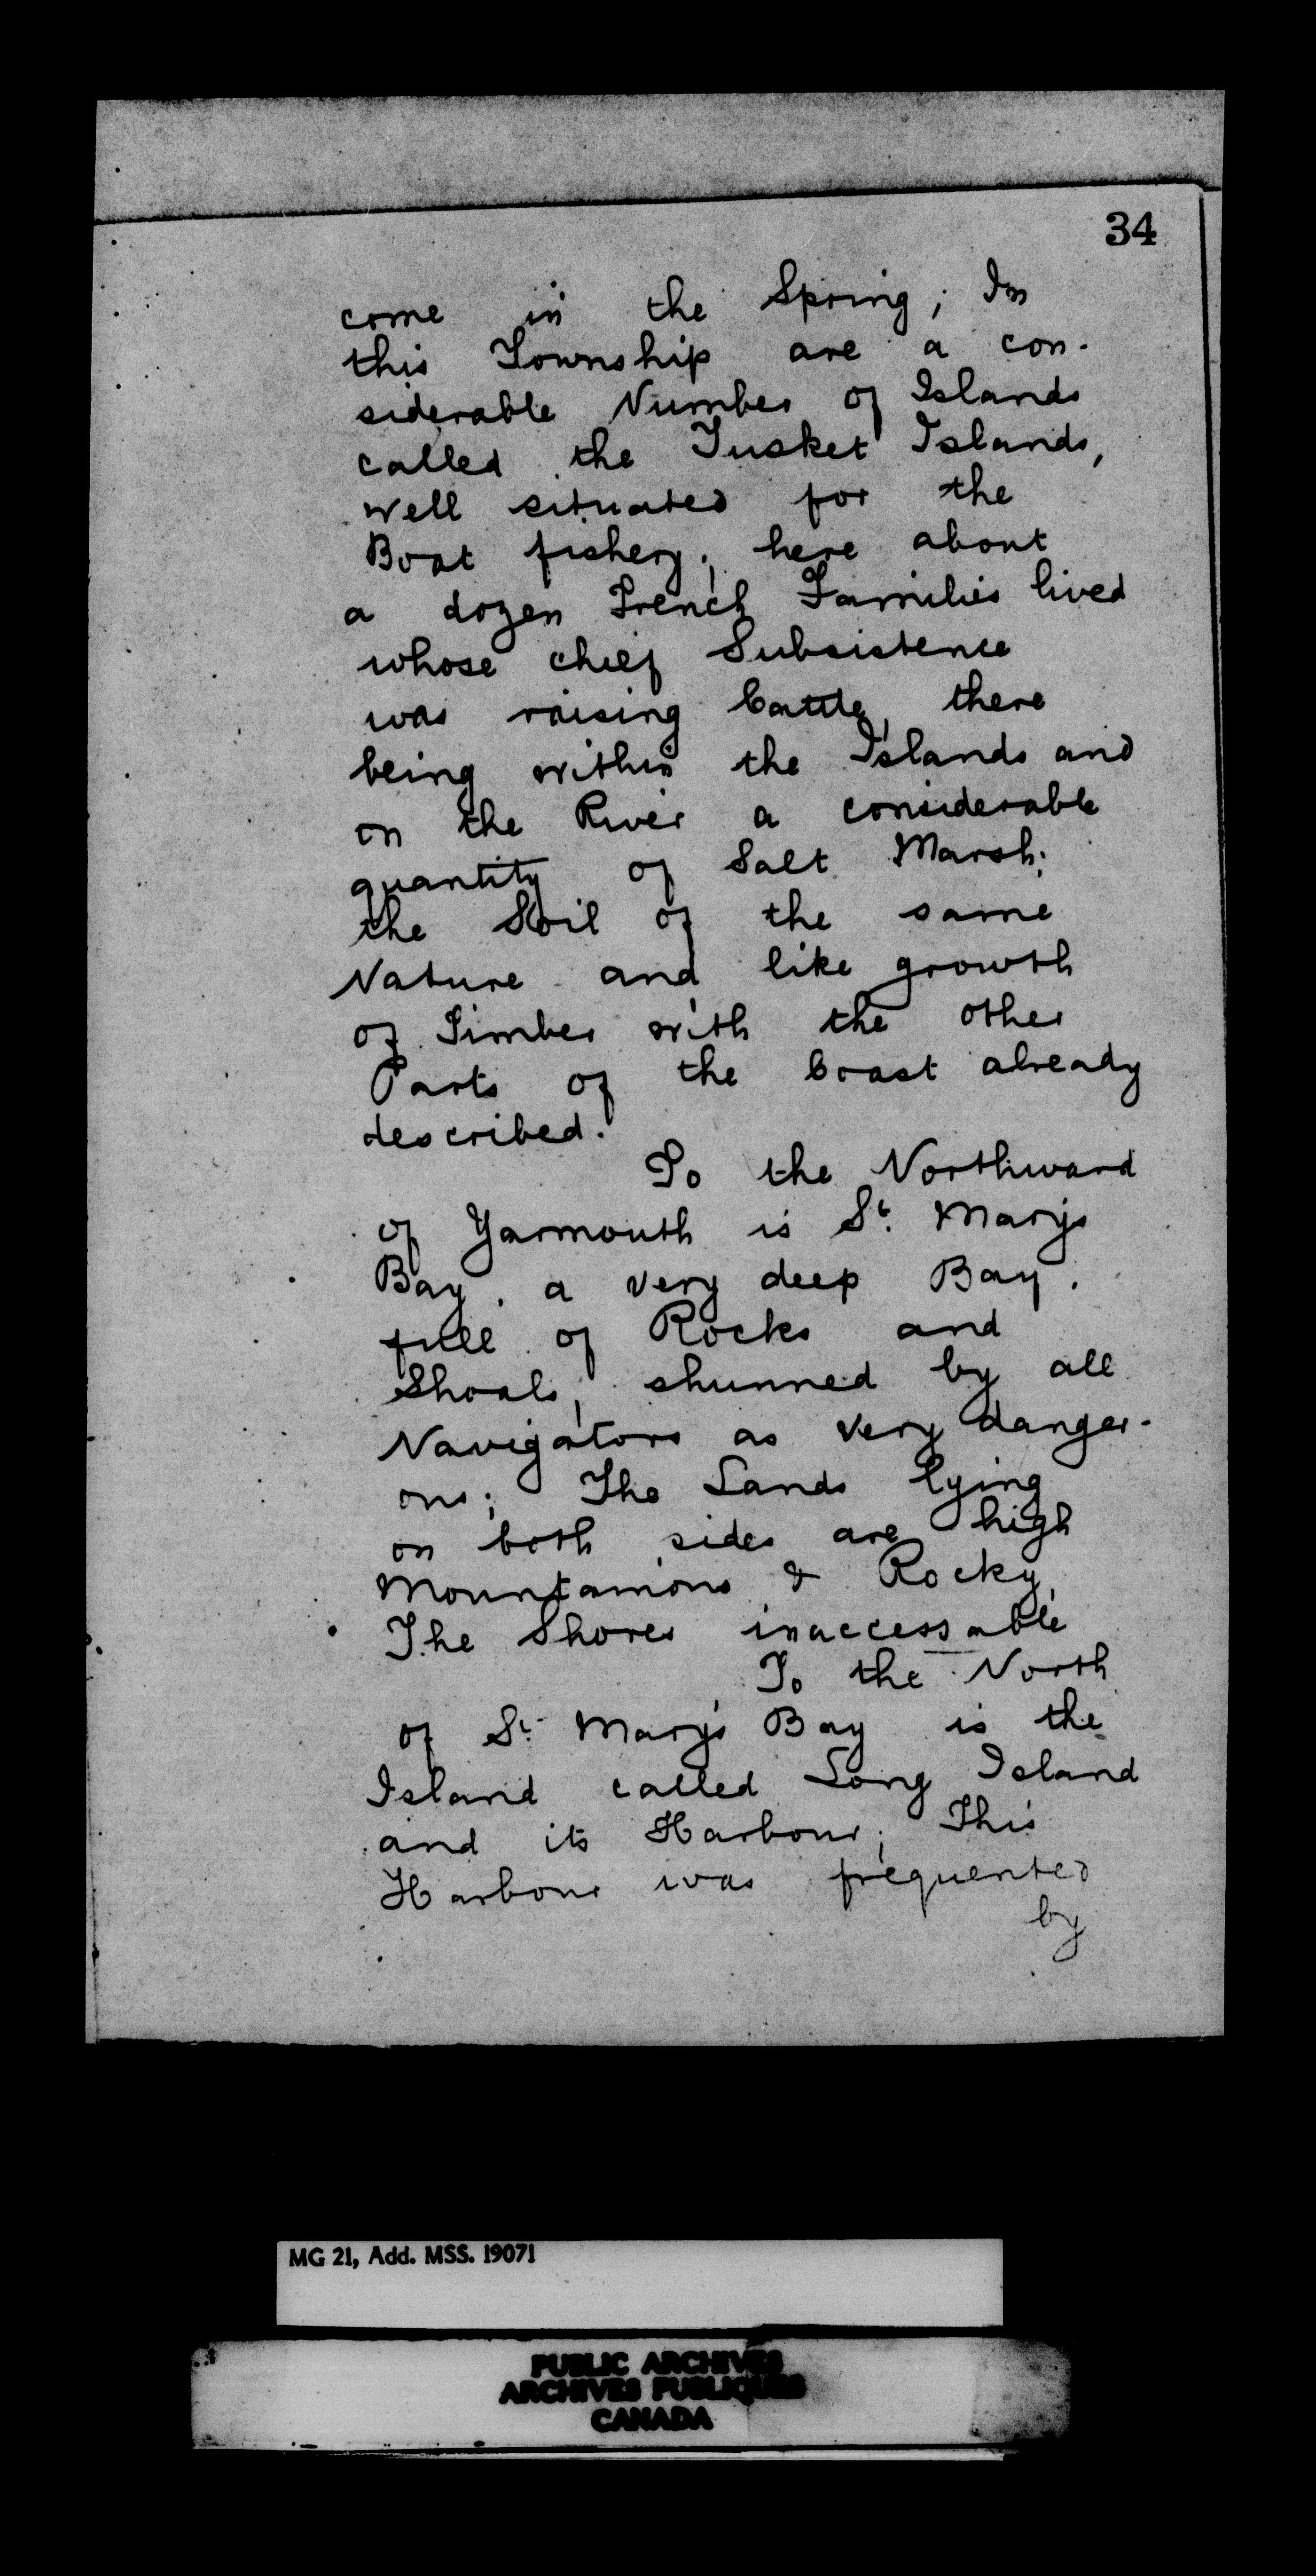 34
come in the Spring; In
this Township are a con-
siderable Number of Islands
called the Tusket Islands,
well situated for the
Boat fishery; here about
a dozen French Families lived
whose chief Subsistence
was raising Cattle, there
being within the Islands and
on the River a considerable
quantity of Salt Marsh;
the Soil of the same
Nature and like growth
of Timber with the other
Parts of the Coast already
described.
To the Northward
of Yarmouth is St. Marys
Bay, a very deep Bay,
full of Rocks and
Shoals, shunned by all
Navigators as very danger-
ous; The Lands lying
on both sides are high
Mountainous & Rocky,
The Shores inaccessable
To the North
of St. Mary's Bay is the
Island called Long Island
and its Harbour; This
Harbour was frequented
by
MG 21, Add. MSS. 19071
PUBLIC ARCHIVES
ARCHIVES PUBLIQUES
CANADA